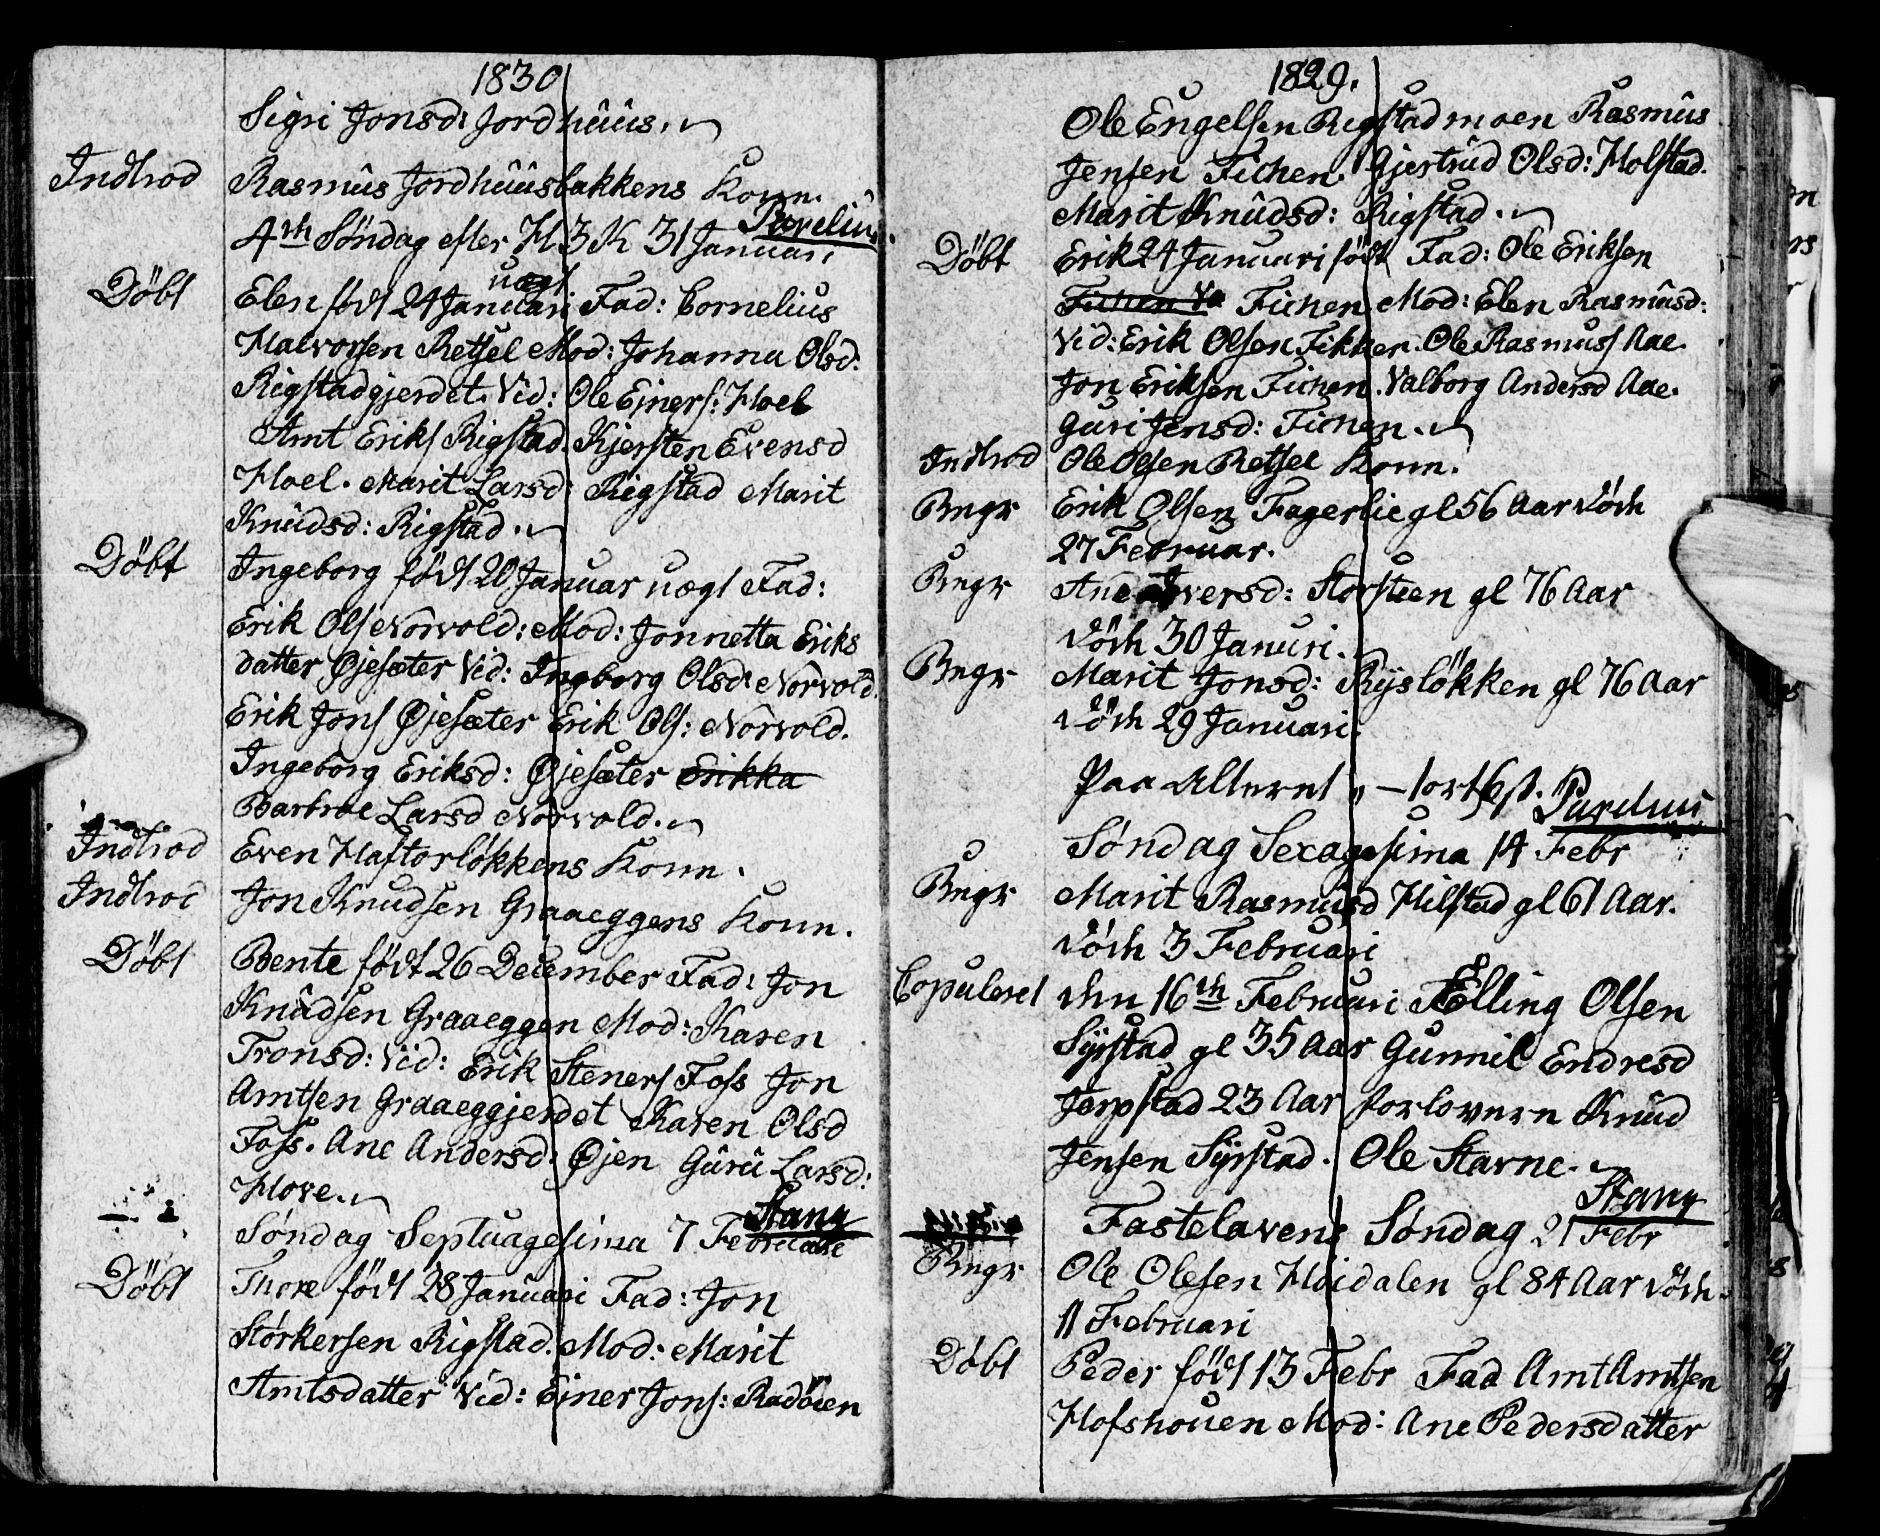 1830
Sigri Jonsd: Jordhuus.
Indtrod Rasmus Jordhuusbakkens Konn.
4th Søndag efter H 3 K 31 Januari Parelius
uægt
Döbt Elen födt 24 Januari Fad: Cornelius
Halvorsen Retsel Mod: Johanna Olsd:
Rigstadgjerdet. Vid: Ole Ejners: Hoel
Amt Eriks Rigstad. Kjersten Evensd
Hoel. Marit Larsd: Rigstad Marit
Knudsd: Rigstad.
Döbt Ingeborg födt 20 Januar uægt Fad:
Erik Ols Norvold: Mod: Jonnetta Eriks
datter Øjesæter Vid: Ingborg Olsd: Norvold.
Erik Jons Øjesæter Erik Ols: Norvold.
Ingeborg Eriksd: Øjesæter Erikka
Barbroe Larsd Norvold.
Indtrod Even Haftorløkkens Konn.
Indtrod Jon Knudsen Graaeggens Konn.
Döbt Bente födt 26 December Fad: Jon
Knudsen Graaeggen Mod: Karen
Tronsd: Vid: Erik Steners Foss Jon
Amtsen Graaeggjerdet Karen Olsd
Foss. Ane Andersd: Øjen Guru Larsd:
Hove.
Stang
Søndag Septuagesima 7 Februarie
Döbt Thore födt 28 Januari Fad: Jon
Störkersen Rigstad. Mod: Marit
Amtsdatter Vid: Ejner Jons: Radöien
1829.
Ole Engelsen Rigstadmoen Rasmus
Jensen Fichen. Gjertrud Olsd: Holstad.
Marit Knudsd: Rigstad.
Döbt Erik 24 Januari födt Fad: Ole Eriksen
Fichen Fichen Mod: Elen Rasmusd:
Vid: Erik Olsen Fikken. Ole Rasmuss Aae.
Jon Eriksen Fichen. Valborg Andersd Aae.
Guri Jensd: Fichen.
Indtrod Ole Olsen Retsel Konn.
Begr Erik Olsen Fagerlie gl 56 Aar död
27 Februar.
Begr Ane Iversd: Storsteen gl 76 Aar
död 30 Januri.
Begr Marit Jonsd: Rysløkken gl 76 Aar
död 29 Januari.
Paa Alteret Parelius
Søndag Sexagesima 14 Febr
Begr Marit Rasmusd Hilstad gl 61 Aar.
död 3 Februari
Copuleret den 16th Februari Elling Olsen
Syrstad gl 35 Aar Gunnil Endresd
Jerpstad 23 Aar forlovere Knud
Jensen Syrstad. Ole Starne.
Stang
Fastelavens Søndag 21 Febr
Begr Ole Olesen Hoidalen gl 84 Aar död
11 Februari
Döbt Peder födt 13 Febr Fad Amt Amtsen
Hofshouen Mod: Ane Pedersdatter